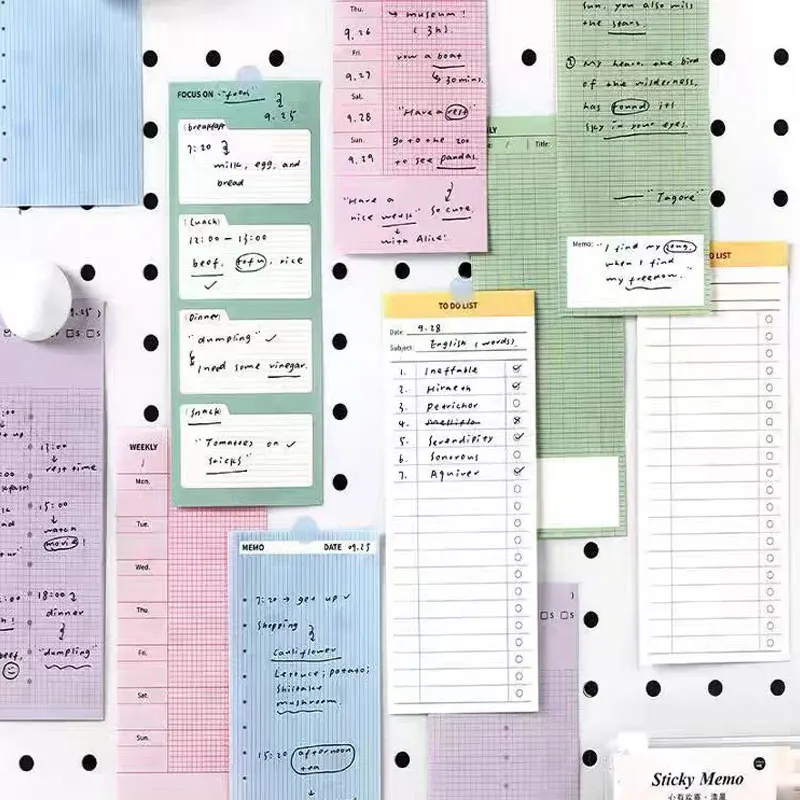 FOCUS ON "food"
9.25
(breakfast)
7:20
milk, egg, and
bread
(Lunch)
12:00 — 13:00
beef, tofu, rice
(Dinner)
"dumpling"
I need some vinegar.
(Snack)
"Tomatoes on
sticks"
Thu.
9.26
museum!
(3h)
Fri.
9.27
row a boat
30mins.
Sat.
9.28
"Have a rest"
Sun.
9.29
go to the zoo
to see pandas.
"Have a
nice week"
So cute.
with Alice!
sun, you also miss
the stars.
② My heart, the bird
of the wilderness,
has found its
sky in your eyes.
—— "Tagore"
Memo:
"I find my song
when I find
my freedom."
Title:
TO DO LIST
Date: 9.28
Subject: English (words)
1. Ineffable
2. Hiraeth
3. Petrichor
4. Mellifluo
5. Serendipity
6. Sonorous
7. Aquiver
O LIST
WEEKLY
/
Mon.
Tue.
Wed.
Thu.
Fri.
Sat.
Sun.
MEMO DATE 09.25
7:20 → get up
Shopping
Cauliflower
Lettuce; potato;
Shiitake
mushroom.
15:20 afternoon
tea
S S
13:00
rest time
15:00
watch
movie!
18:00
dinner
"dumpling"
beef.
S S
Sticky Memo